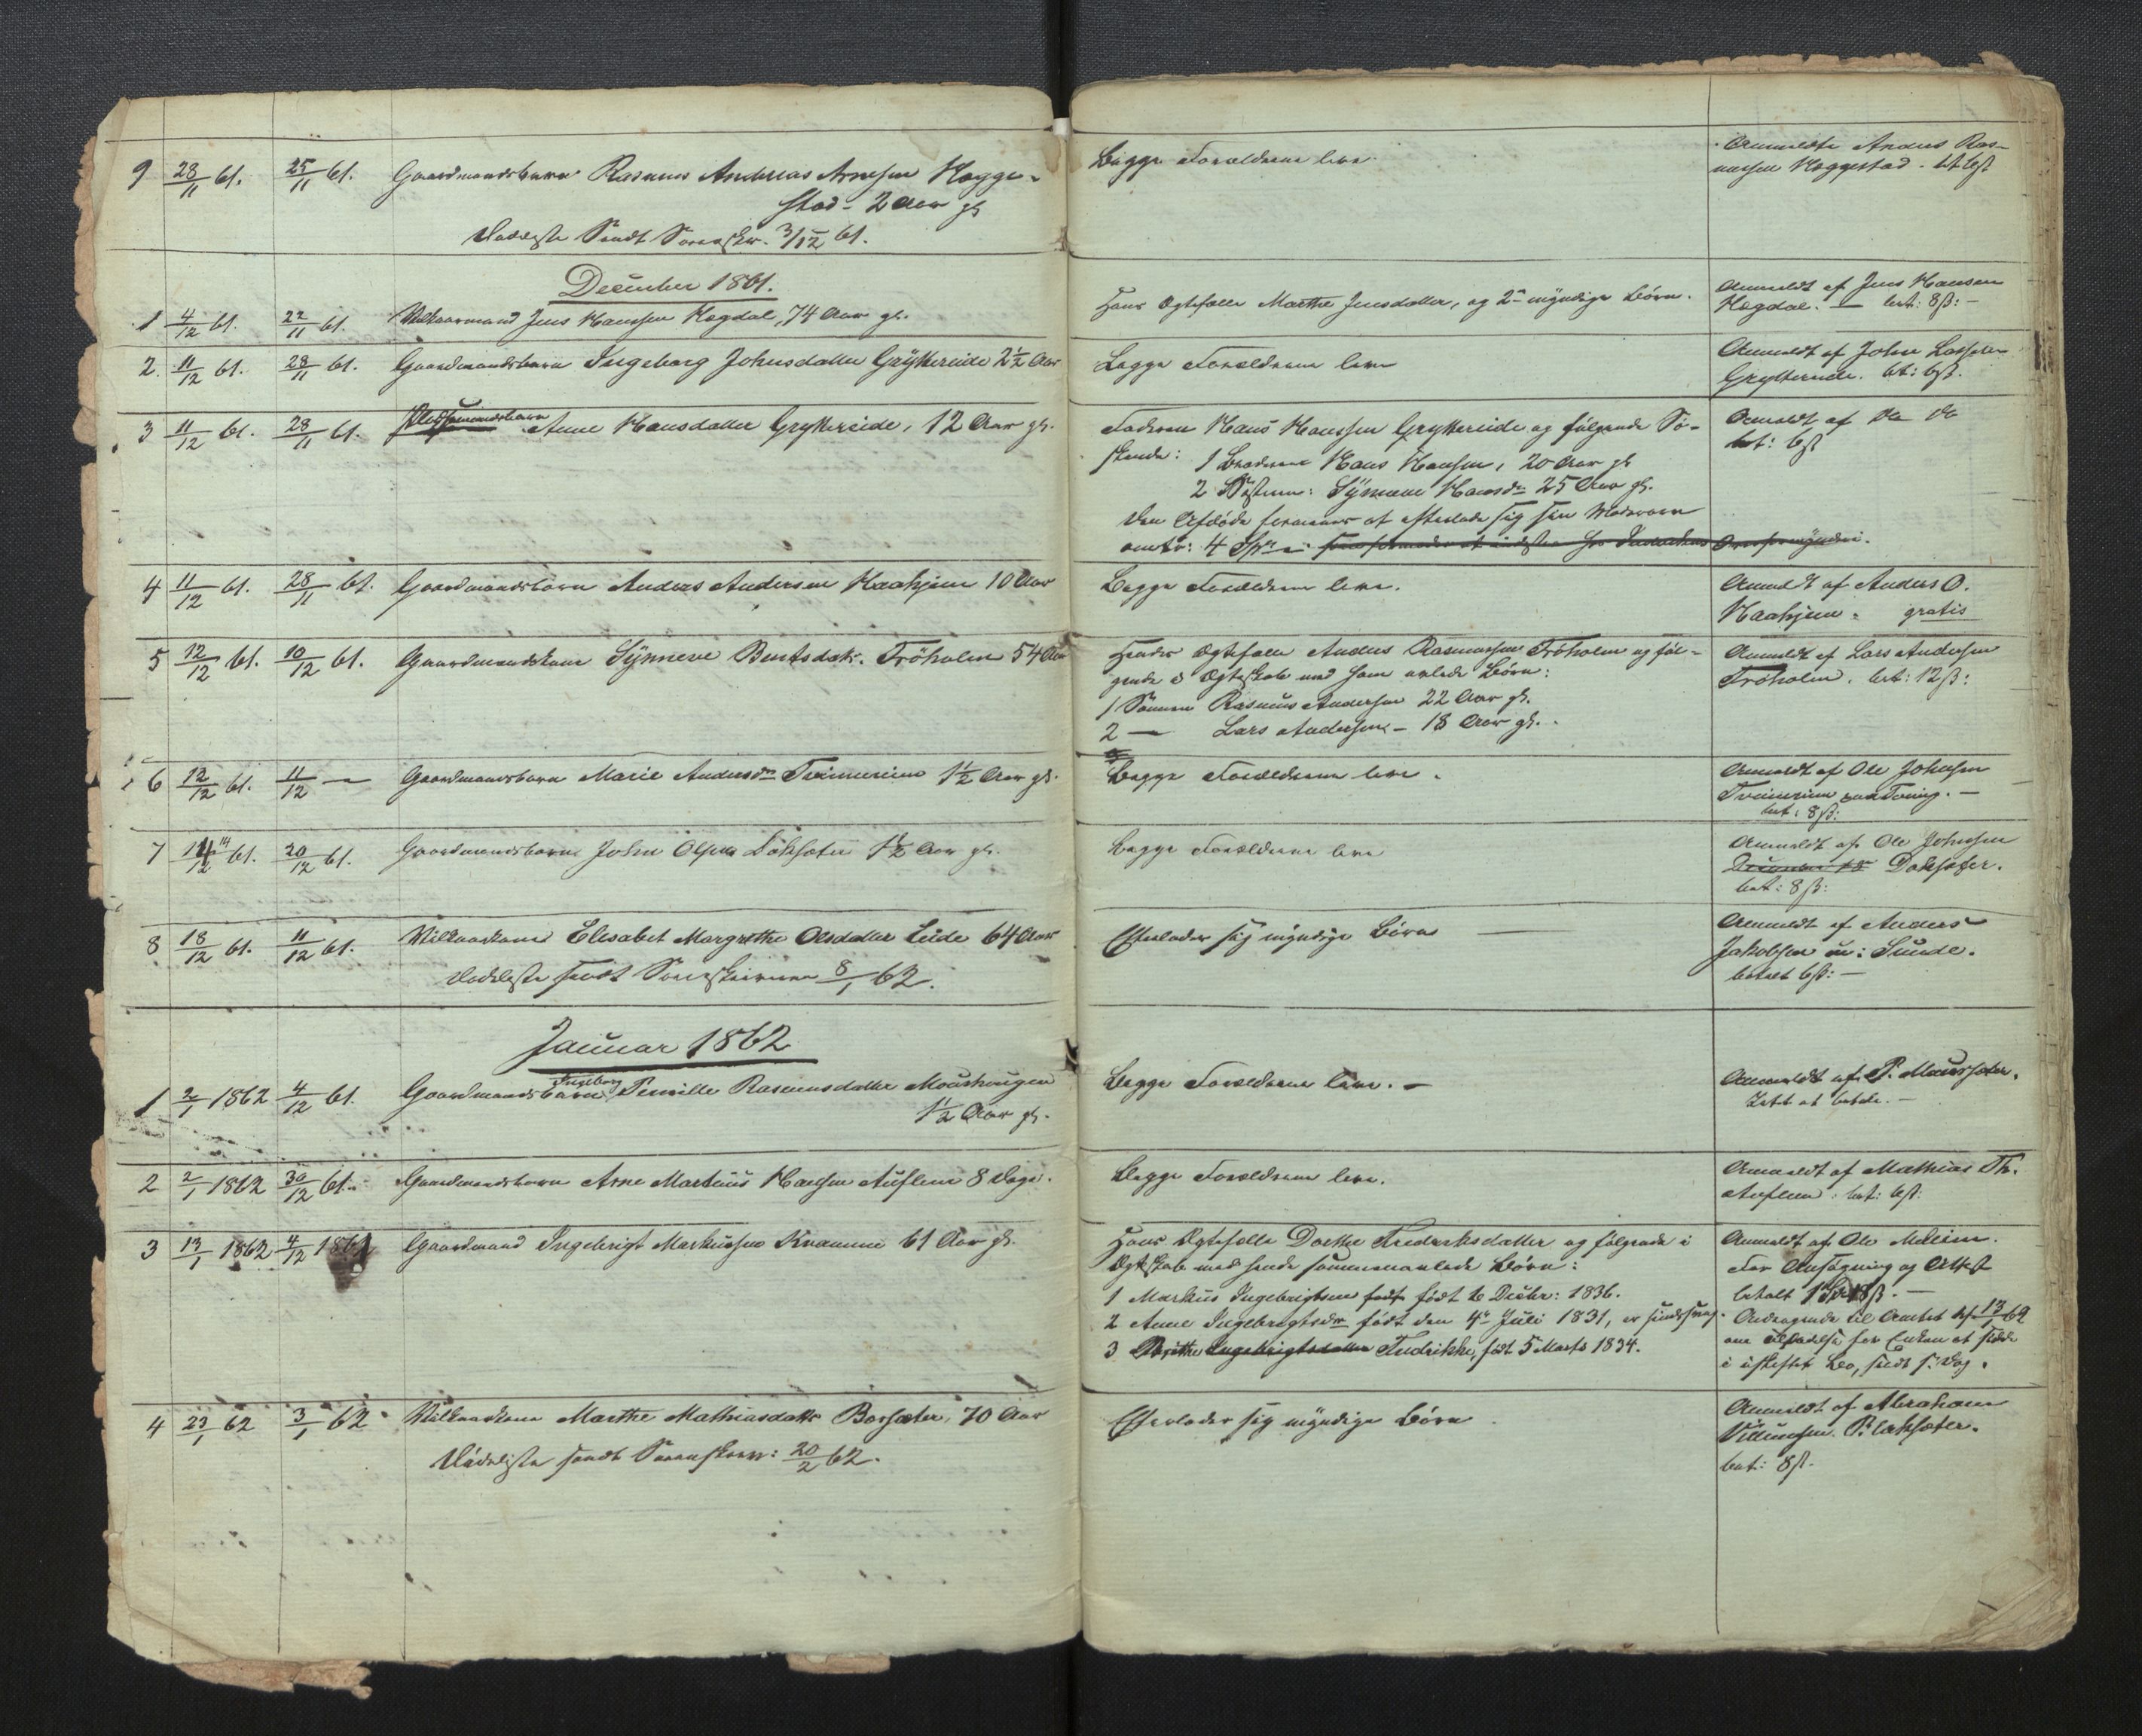 9 28/11 61. 25/11 61. Gaardmandsbarn Rasmus Andreas Arnesen Hogge-
stad - 2 Aar gl
Dødliste Sendt Sorenskr. 3/12 61.
Begge Forældrene leve.
Anmeldte Anders Ras-
mussen Hoggestad. bt 6ß
December 1861.
1 4/12 61. 22/11 61. Vilkaarmand Jens Hanssen Hogdal, 74 Aar gl.
Hans Ægtefælle Marthe Jensdatter, og 2de myndige Børn.
Anmeldt af Jens Hansen
Hogdal. — bet: 8ß: —
2. 11/12 61. 28/11 61. Gaardmandsbarn Ingeborg Johnsdatter Gryttereide 2½ Aar
Begge Forældrene leve
Anmeldt af John Lassesen
Gryttereide. bt: 6ß.
3 11/12 61. 28/11 61. Anne Hansdatter Gryttereide, 12 Aar gl.
Faderen Hans Hanssen Gryttereide og følgende Sø-
skende: 1 Broderen Hans Hansen, 20 Aar gl
2 Søsteren: Synneve Hansdr 25 Aar gl.
Den Afdøde formenes at efterlade sig sin Mødrearv
omtr: 4 Spd
Anmeldt af do do
bet: 6ß
4 11/12 61. 28/11 61. Gaardmandsbarn Anders Andersen Haahjem 10 Aar
Begge Forældrene leve.
Anmeldt af Anders O.
Haahjem. gratis
5 12/12 61. 10/12 61. Gaardmandskone Synneve Berntsdatr. Frøholm 54 Aar
Hendes Ægtefælle Anders Rasmussen Frøholm og føl-
gende i Ægteskab med ham avlede Børn:
1 Sønnen Rasmus Andersen 22 Aar gl.
2 — Lars Andersen - 18 Aar gl.
Anmeldt af Lars Andersen
Frøholm. bet: 12ß:
6 12/12 61. 11/12 — Gaardmandsbarn Marie Andersdr 1½ Aar gl.
Begge Forældrene leve.
Anmeldt af Ole Johnsen
bet: 8ß:
7 14/12 61. 20/12 61. Gaardmandsbarn John Olsen 1½ Aar gl.
Begge Forældrene leve
Anmeldt af Ole Johnsen
bet: 8ß:
8 18/12 61. 11/12 61. Vilkaarkone Elisabet Margrethe Olsdatter Eide 64 Aar
Dødliste sendt Sorenskriveren 8/1 62.
Efterlader sig myndige Børn —
Anmeldt af Anders
Jakobsen Sunde.
betalt 6ß: —
Januar 1862
1 2/1 1862 4/12 61. Gaardmandsbarn Ingeborg Pernille Rasmusdatter
1½ Aar gl.
Begge Forældrene leve. —
Anmeldt af P. Maursæter.
Lovet at betale. —
2 2/1 1862 30/12 61. Gaardmandsbarn Arne Martinus Hansen Auflem 8 Dage.
Begge Forældrene leve.
Anmeldt af Mathias Th.
Auflem. bet: 6ß:
3 13/1 1862 4/12 1861 Gaardmand Ingebrigt Markussen Kramme 61 Aar gl.
Hans Ægtefælle Dorthe Fredriksdatter og følgende i
Ægteskab med hende sammenavlede Børn:
1 Markus Ingebrigtsen født 16 Decbr: 1836.
2 Anne Ingebrigtsdr født den 4de Juli 1831, er sindssvag.
3 Brithe Ingebrigtsdatter Fredrikke, født 5 Marts 1834.
Anmeldt af Ole Meleim.
For Ansøgning og Attest
betalt 1 Spd 18ß. —
Andragende til Amtet af 13/1 62
om Tilladelse for Enken at sidde
i uskiftet Bo, sendt s: Dag.
4 23/1 62 3/1 62 Vilkaarkone Marthe Mathiasdatter Borsæter, 70 Aar
Dødsliste sendt Sorenskrr: 20/2 62.
Efterlader sig myndige Børn
Anmeldt af Abraham
Villumsen Blaksæter.
bet: 8ß.